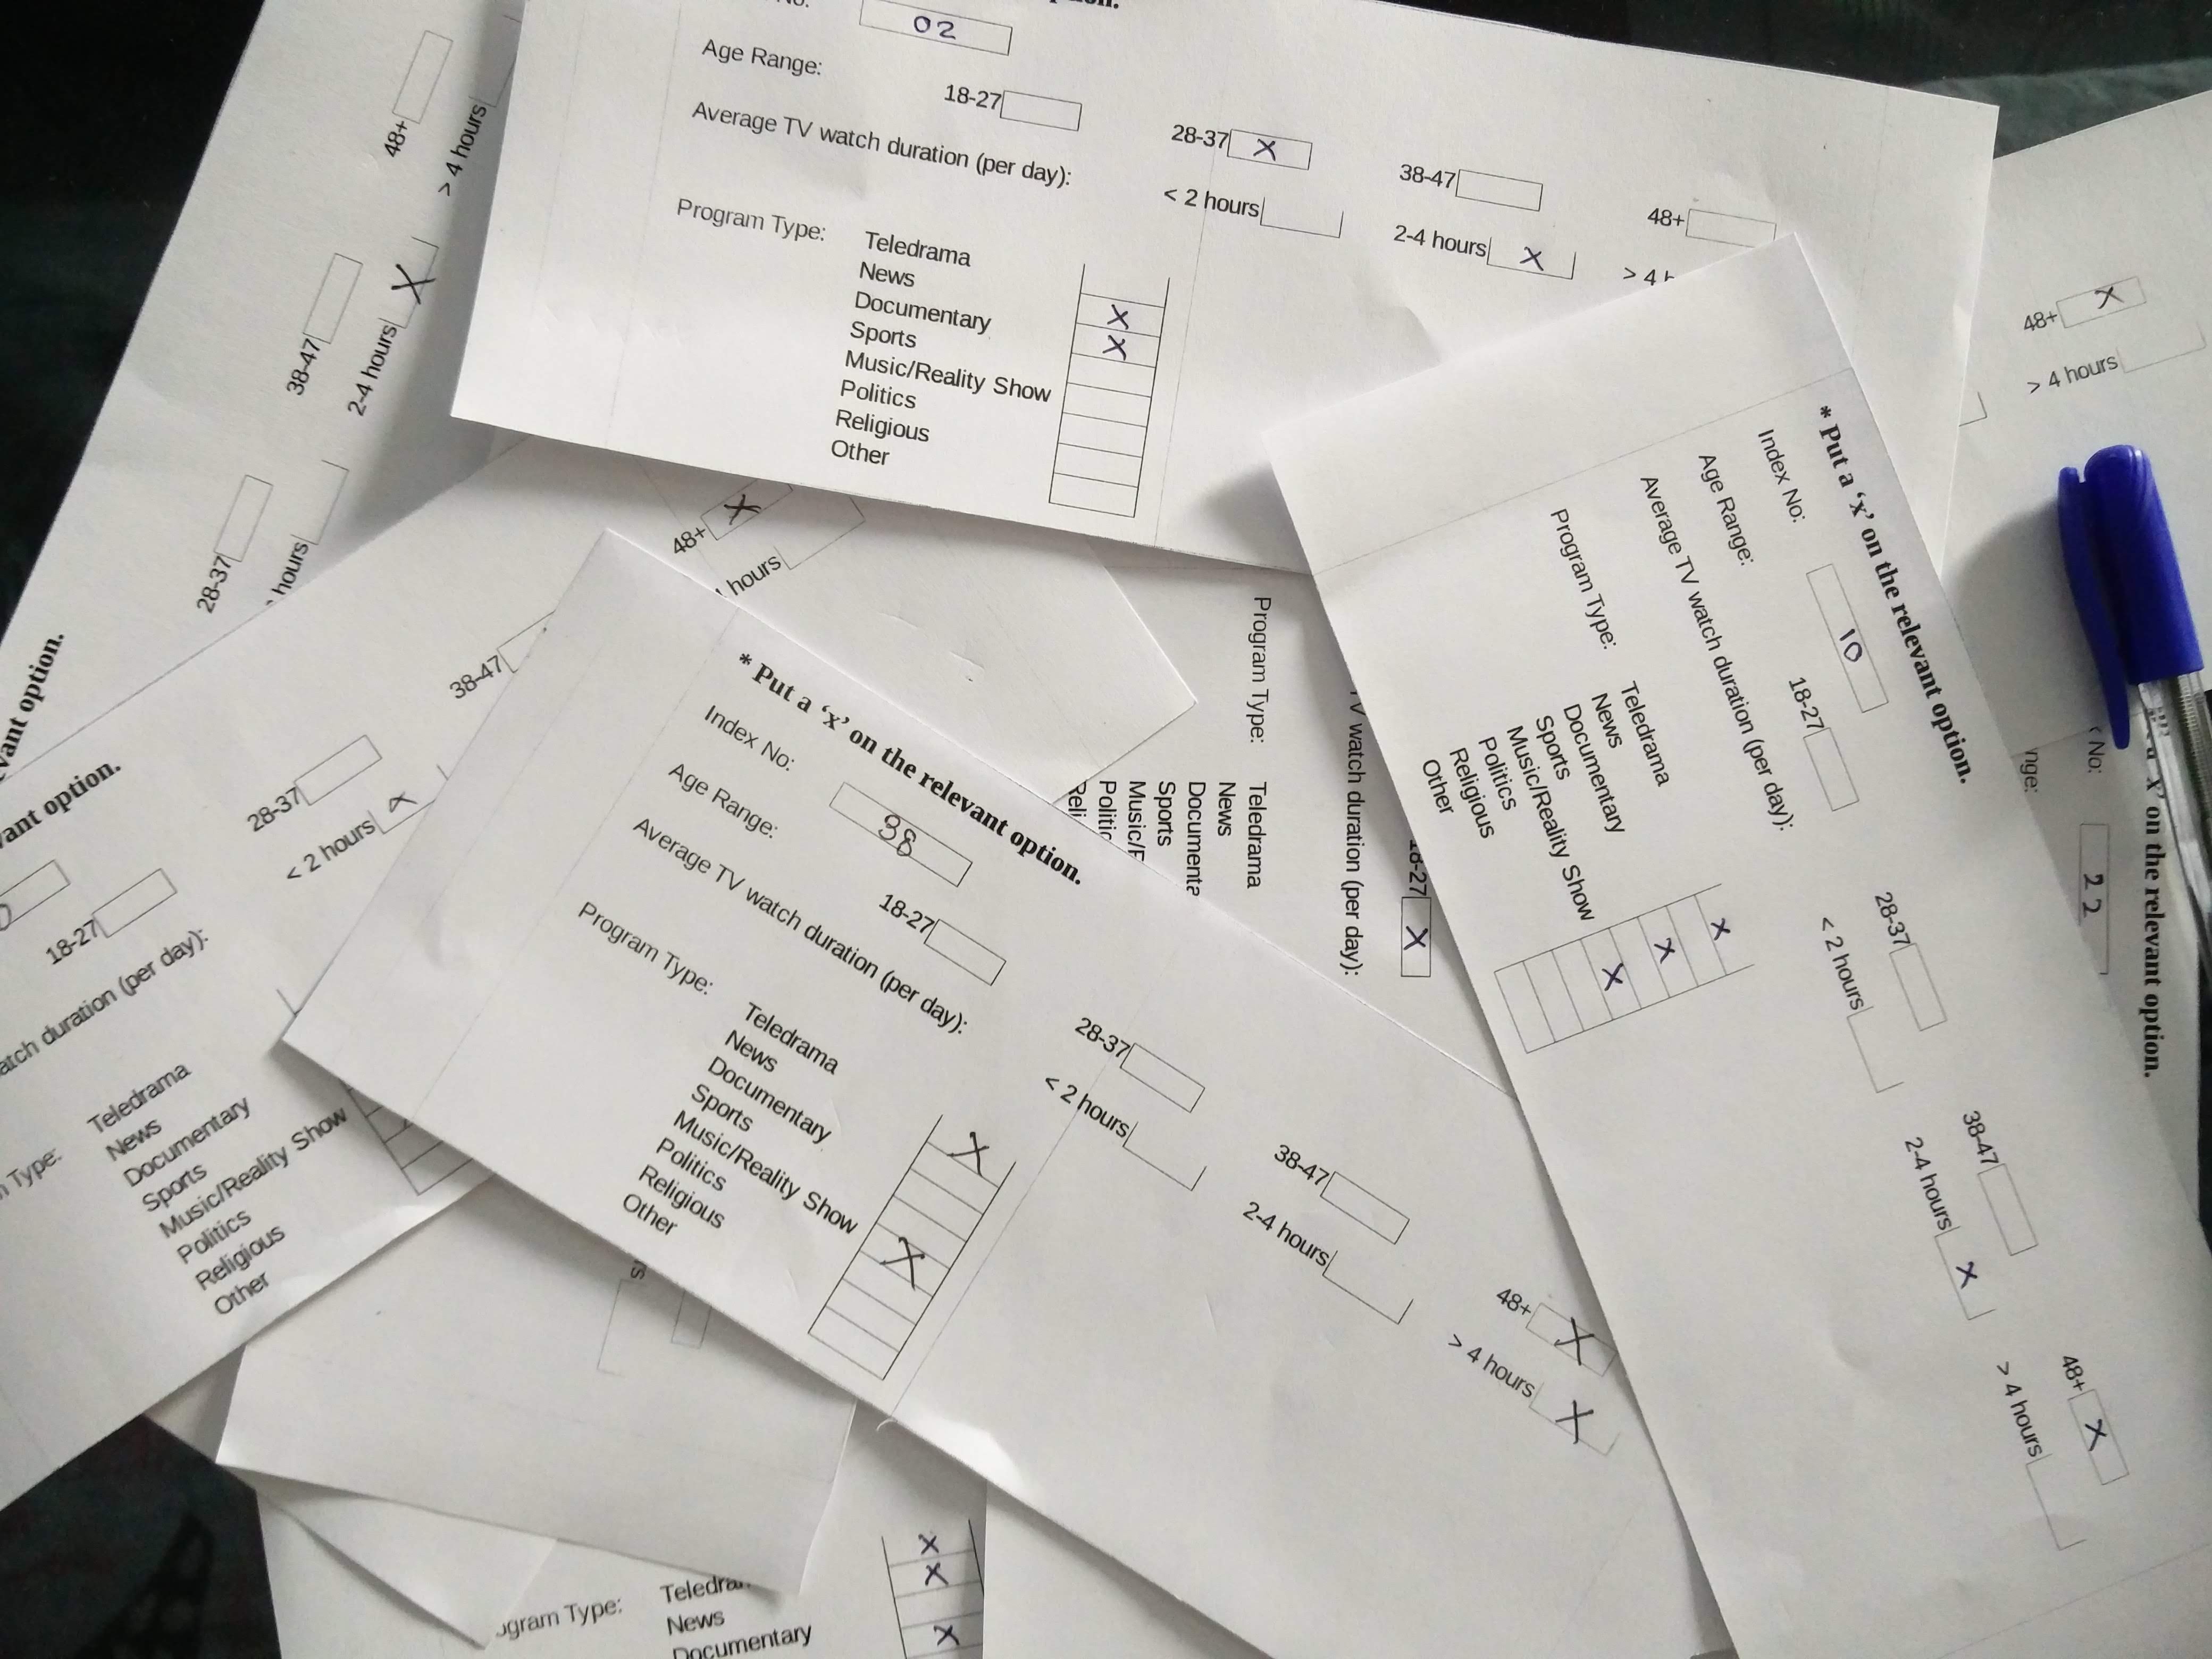 No.
02
Age Range:
18-27
28-37 x
38-47
48+
Average TV watch duration (per day):
< 2 hours
2-4 hours x
> 4
Program Type:
Teledrama
News
Documentary x
Sports x
Music/Reality Show
Politics
Religious
Other
* Put a ‘x’ on the relevant option.
Index No: 10
Age Range:
18-27
28-37
38-47
48+ x
Average TV watch duration (per day):
< 2 hours
2-4 hours x
> 4 hours
Program Type:
Teledrama x
News
Documentary x
Sports
Music/Reality Show x
Politics
Religious
Other
* Put a ‘x’ on the relevant option.
Index No: 38
Age Range:
18-27
28-37
38-47
48+ x
Average TV watch duration (per day):
< 2 hours
2-4 hours
> 4 hours x
Program Type:
Teledrama x
News
Documentary
Sports
Music/Reality Show x
Politics
Religious
Other
48+
> 4 hours
38-47
2-4 hours x
28-37
hours
option.
option.
48+ x
hours
38-47
28-37
< 2 hours x
18-27
duration (per day):
Type:
Teledrama
News
Documentary
Sports
Music/Reality Show
Politics
Religious
Other
Program Type:
Teledrama
News
Sports
watch duration (per day):
18-27 x
48+ x
> 4 hours
No: 22
on the relevant option.
x
x
x
Type:
News
Documentary